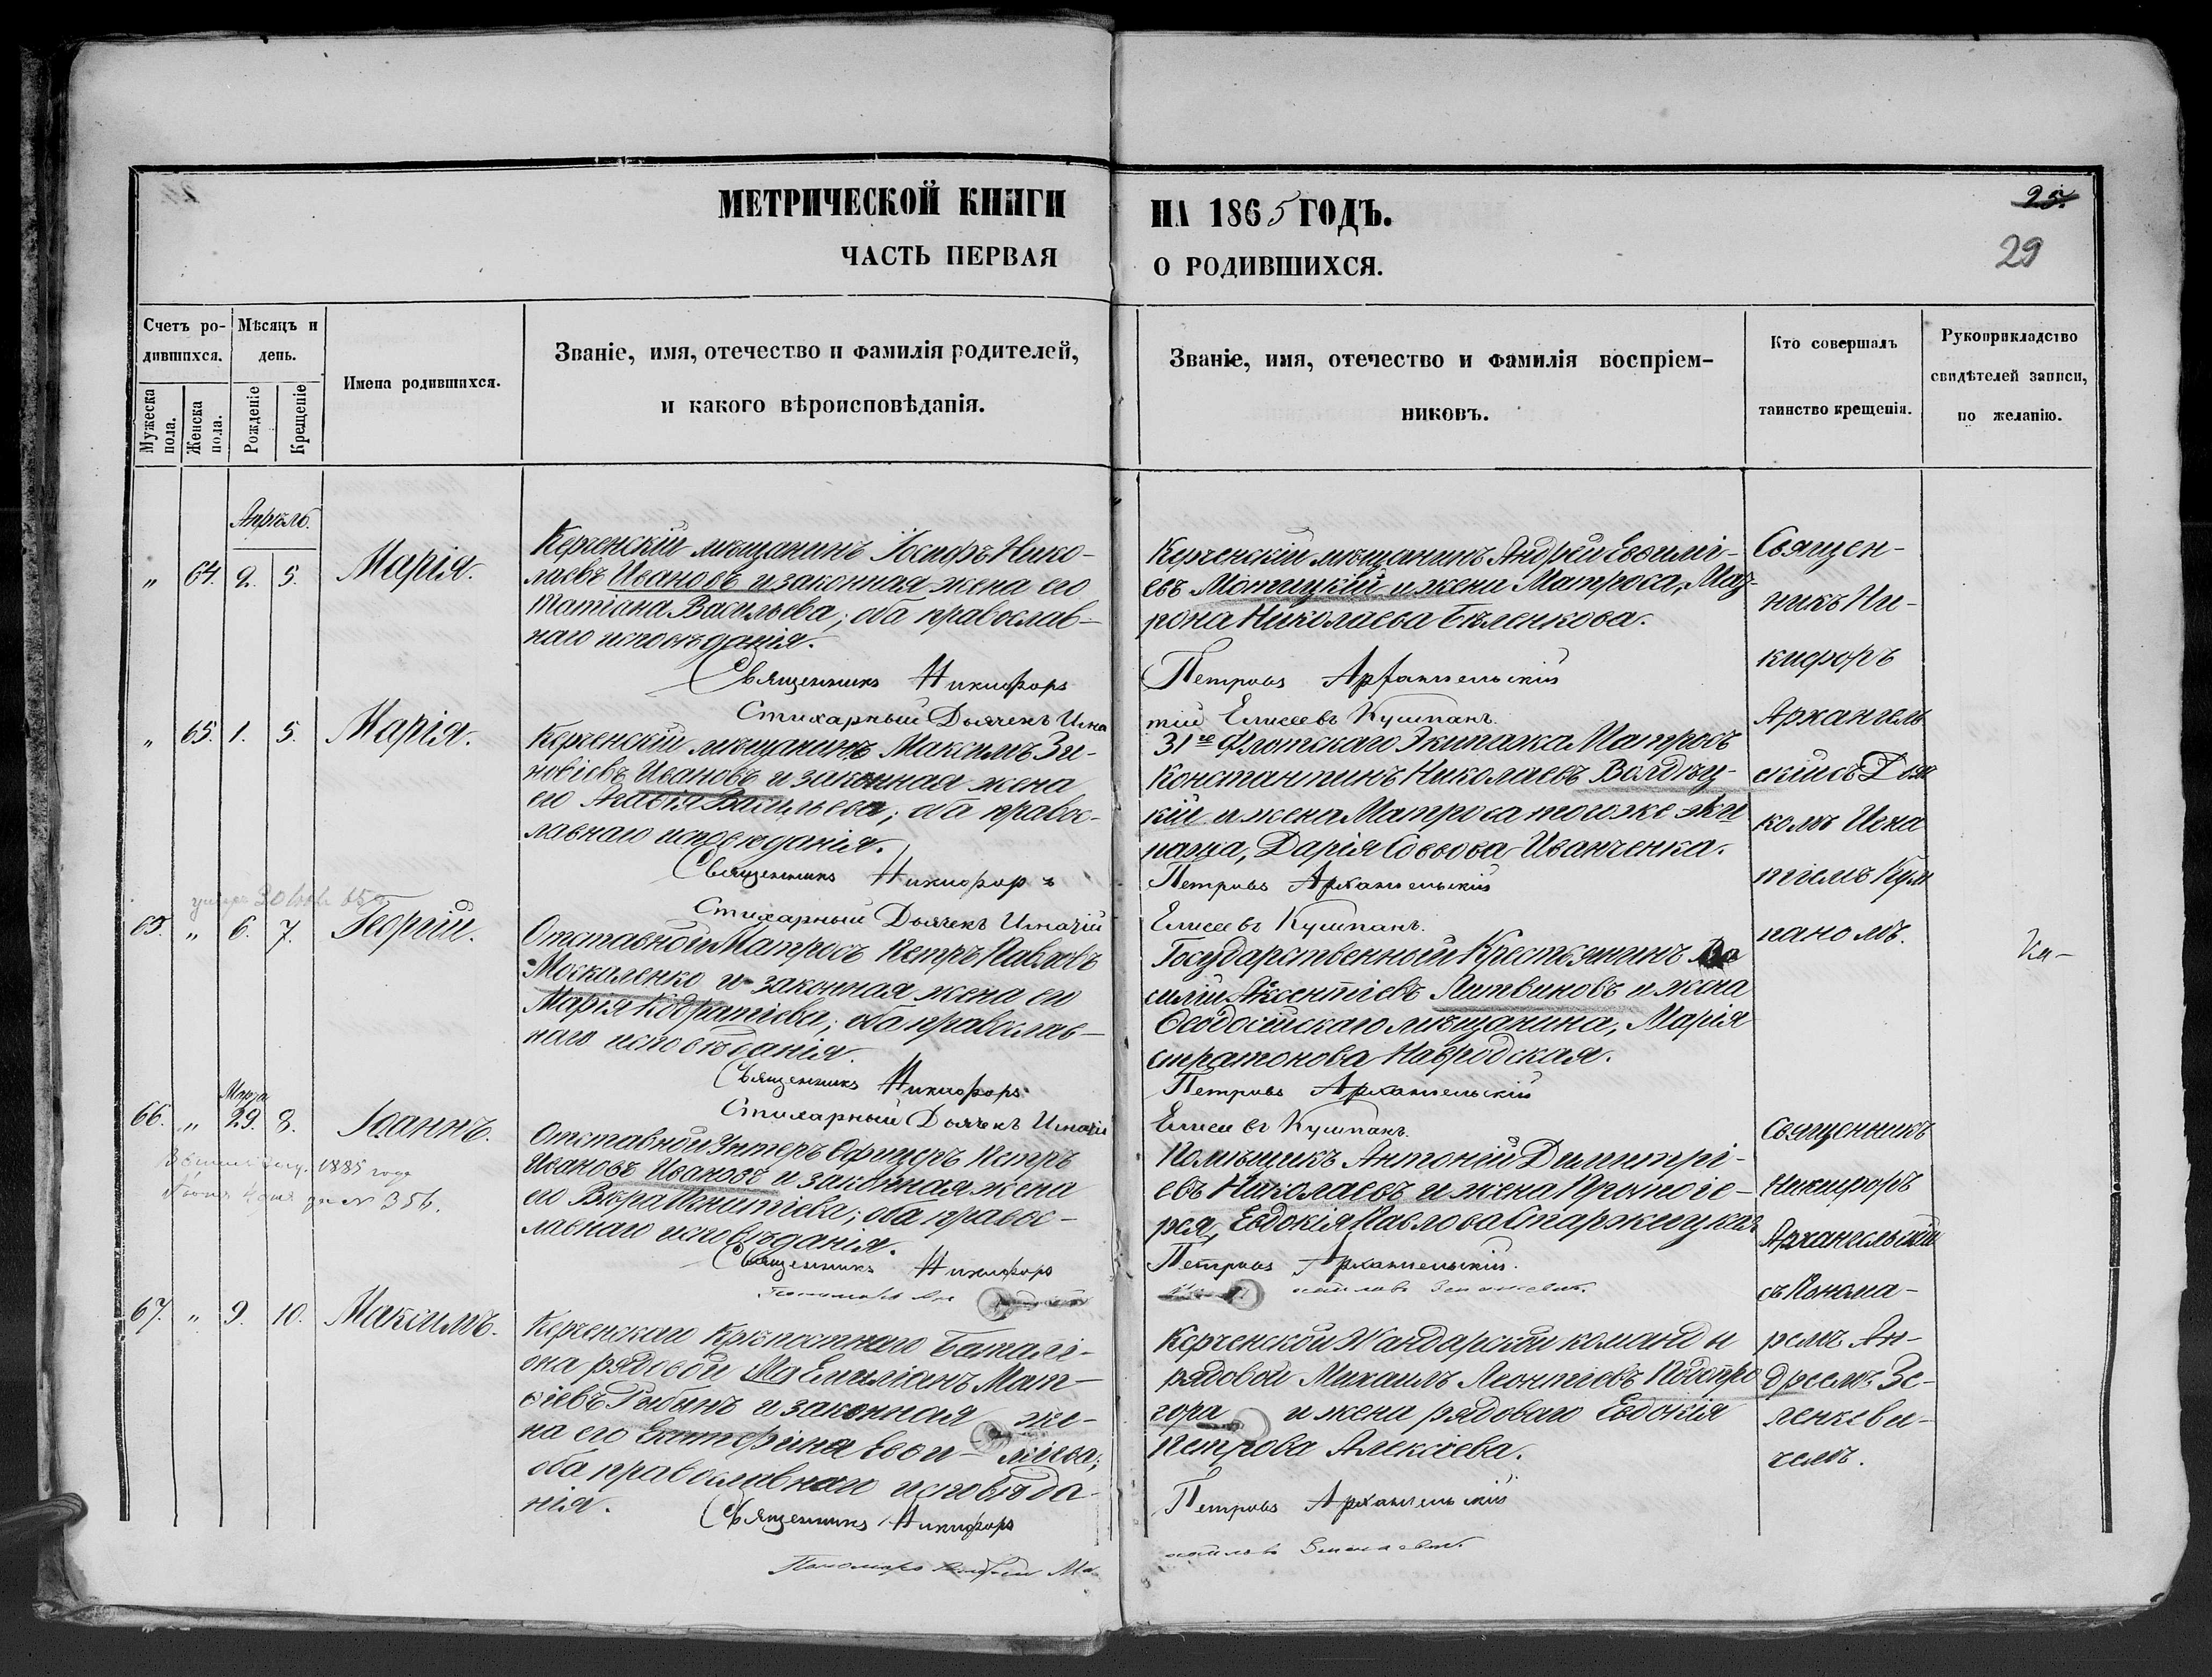 МЕТРИЧЕСКОЙ КНИГИ
ЧАСТЬ ПЕРВАЯ
НА 1865 ГОДЪ.
О РОДИВШИХСЯ.
25.
29
Счетъ ро-
дившихся.
Мужеска
пола.
Женска
пола.
Мѣсяцъ и
день.
Рожденіе
Крещеніе
Имена родившихся.
Званіе, имя, отечество и фамилія родителей,
и какого вѣроисповѣданія.
Званіе, имя, отечество и фамилія воспріем-
никовъ.
Кто совершалъ
таинство крещенія.
Рукоприкладство
свидѣтелей записи,
по желанію.
Апрѣль.
„ 64. 2. 5. Марія.
Керченскій мѣщанинъ Іосифъ Нико-
лаевъ Ивановъ и законная жена его
Татіана Васильева; оба православ-
наго исповѣданія.
Священникъ Никифоръ
Стихарный Дьячекъ Игна
Керченскій мѣщанинъ Андрей Евѳимі-
евъ Мотицкій и жена Матроса, Мат-
рона Николаева Бѣленкова.
Петровъ Архангельскій
тій Елисеевъ Кушпанъ.
Священ-
никъ Ни-
кифоръ
Архангель
скій съ Дья
комъ Игна
тіемъ Куш
паномъ.
„ 65. 1. 5. Марія.
Керченскій мѣщанинъ Максимъ Зи-
новіевъ Ивановъ и законная жена
его Агаѳія Васильева; оба правос-
лавнаго исповѣданія.
Священникъ Никифоръ
Стихарный Дьячекъ Игнатій
31го Флотскаго Экипажа Матросъ
Константинъ Николаевъ
кій и жена Матроса того же Эки
пажа, Дарія Саввова Иванченка.
Петровъ Архангельскій
Елисеевъ Кушпанъ.
65. „ 6. 7. Георгій.
Отставной Матросъ Петръ Павловъ
Москаленко и законная жена его
Марія Кодратіева; оба православ-
наго исповѣданія.
Священникъ Никифоръ
Стихарный Дьячекъ Игнатій
Государственной Крестьянинъ Ва
силій Аксентіевъ Литвиновъ и жена
Ѳеодосійскаго мѣщанина, Марія
Стратонова Навродская.
Петровъ Архангельскій
Елисеевъ Кушпанъ.
Марта
66. „ 29. 8. Іоаннъ.
1885 года
№ 356.
Отставной Унтеръ Офицеръ Петръ
Ивановъ Ивановъ и законная жена
его Вѣра Игнатіева; оба правос-
лавнаго исповѣданія.
Священникъ Никифоръ
Помѣщикъ Антоній Димитрі-
евъ Николаевъ и жена Протоіе-
рея, Евдокія Павлова Старжицкая
Петровъ Архангельскій.
Священникъ
Никифоръ
Архангельскій
съ Понома-
ремъ Ан-
дреемъ Зе-
ленкеви-
чемъ.
67. „ 9. 10. Максимъ.
Керченскаго Крѣпостнаго Баталі-
она рядовой Емиліанъ Мат-
ѳіевъ Рыбинъ и законная же-
на его Екатерина Евѳи-міева;
оба православнаго исповѣда-
нія.
Священникъ Никифоръ
Пономарь Андрей
Керченской Жандарской команды
рядовой Михаилъ Леонтіевъ Подопро
гора и жена рядоваго Евдокія
Петрова Алексіева.
Петровъ Архангельскій